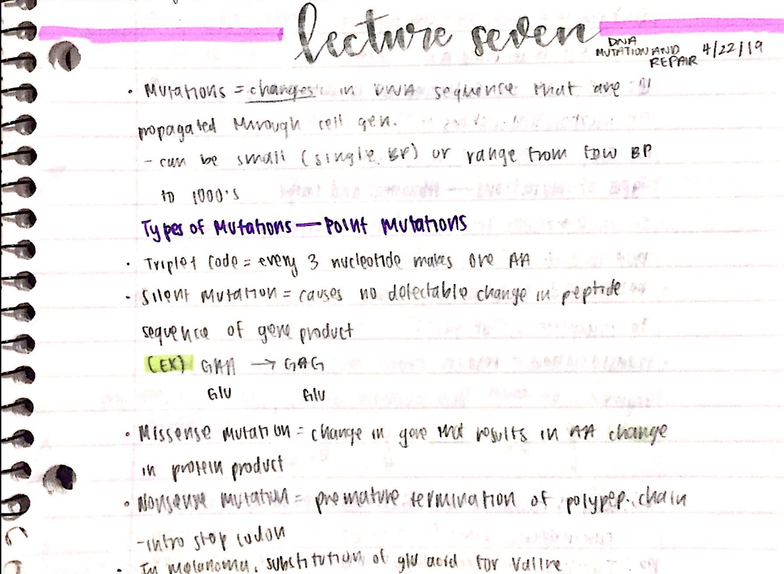 lecture seven
DNA
MUTATION AND
REPAIR 4/22/19
• Mutations = changes in DNA sequence that are
propagated through cell gen.
- can be small (single BP) or range from few BP
to 1000's
Types of Mutations — Point Mutations
• Triplet code = every 3 nucleotide makes one AA
• Silent Mutation = causes no detectable change in peptide
sequence of gene product
(EX) GAA → GAG
Glu Glu
• Missense mutation = change in gene that results in AA change
in protein product
• Nonsense mutation = premature termination of polypep. chain
- intro stop codon
• In melanoma, substitution of glu acid for Valine